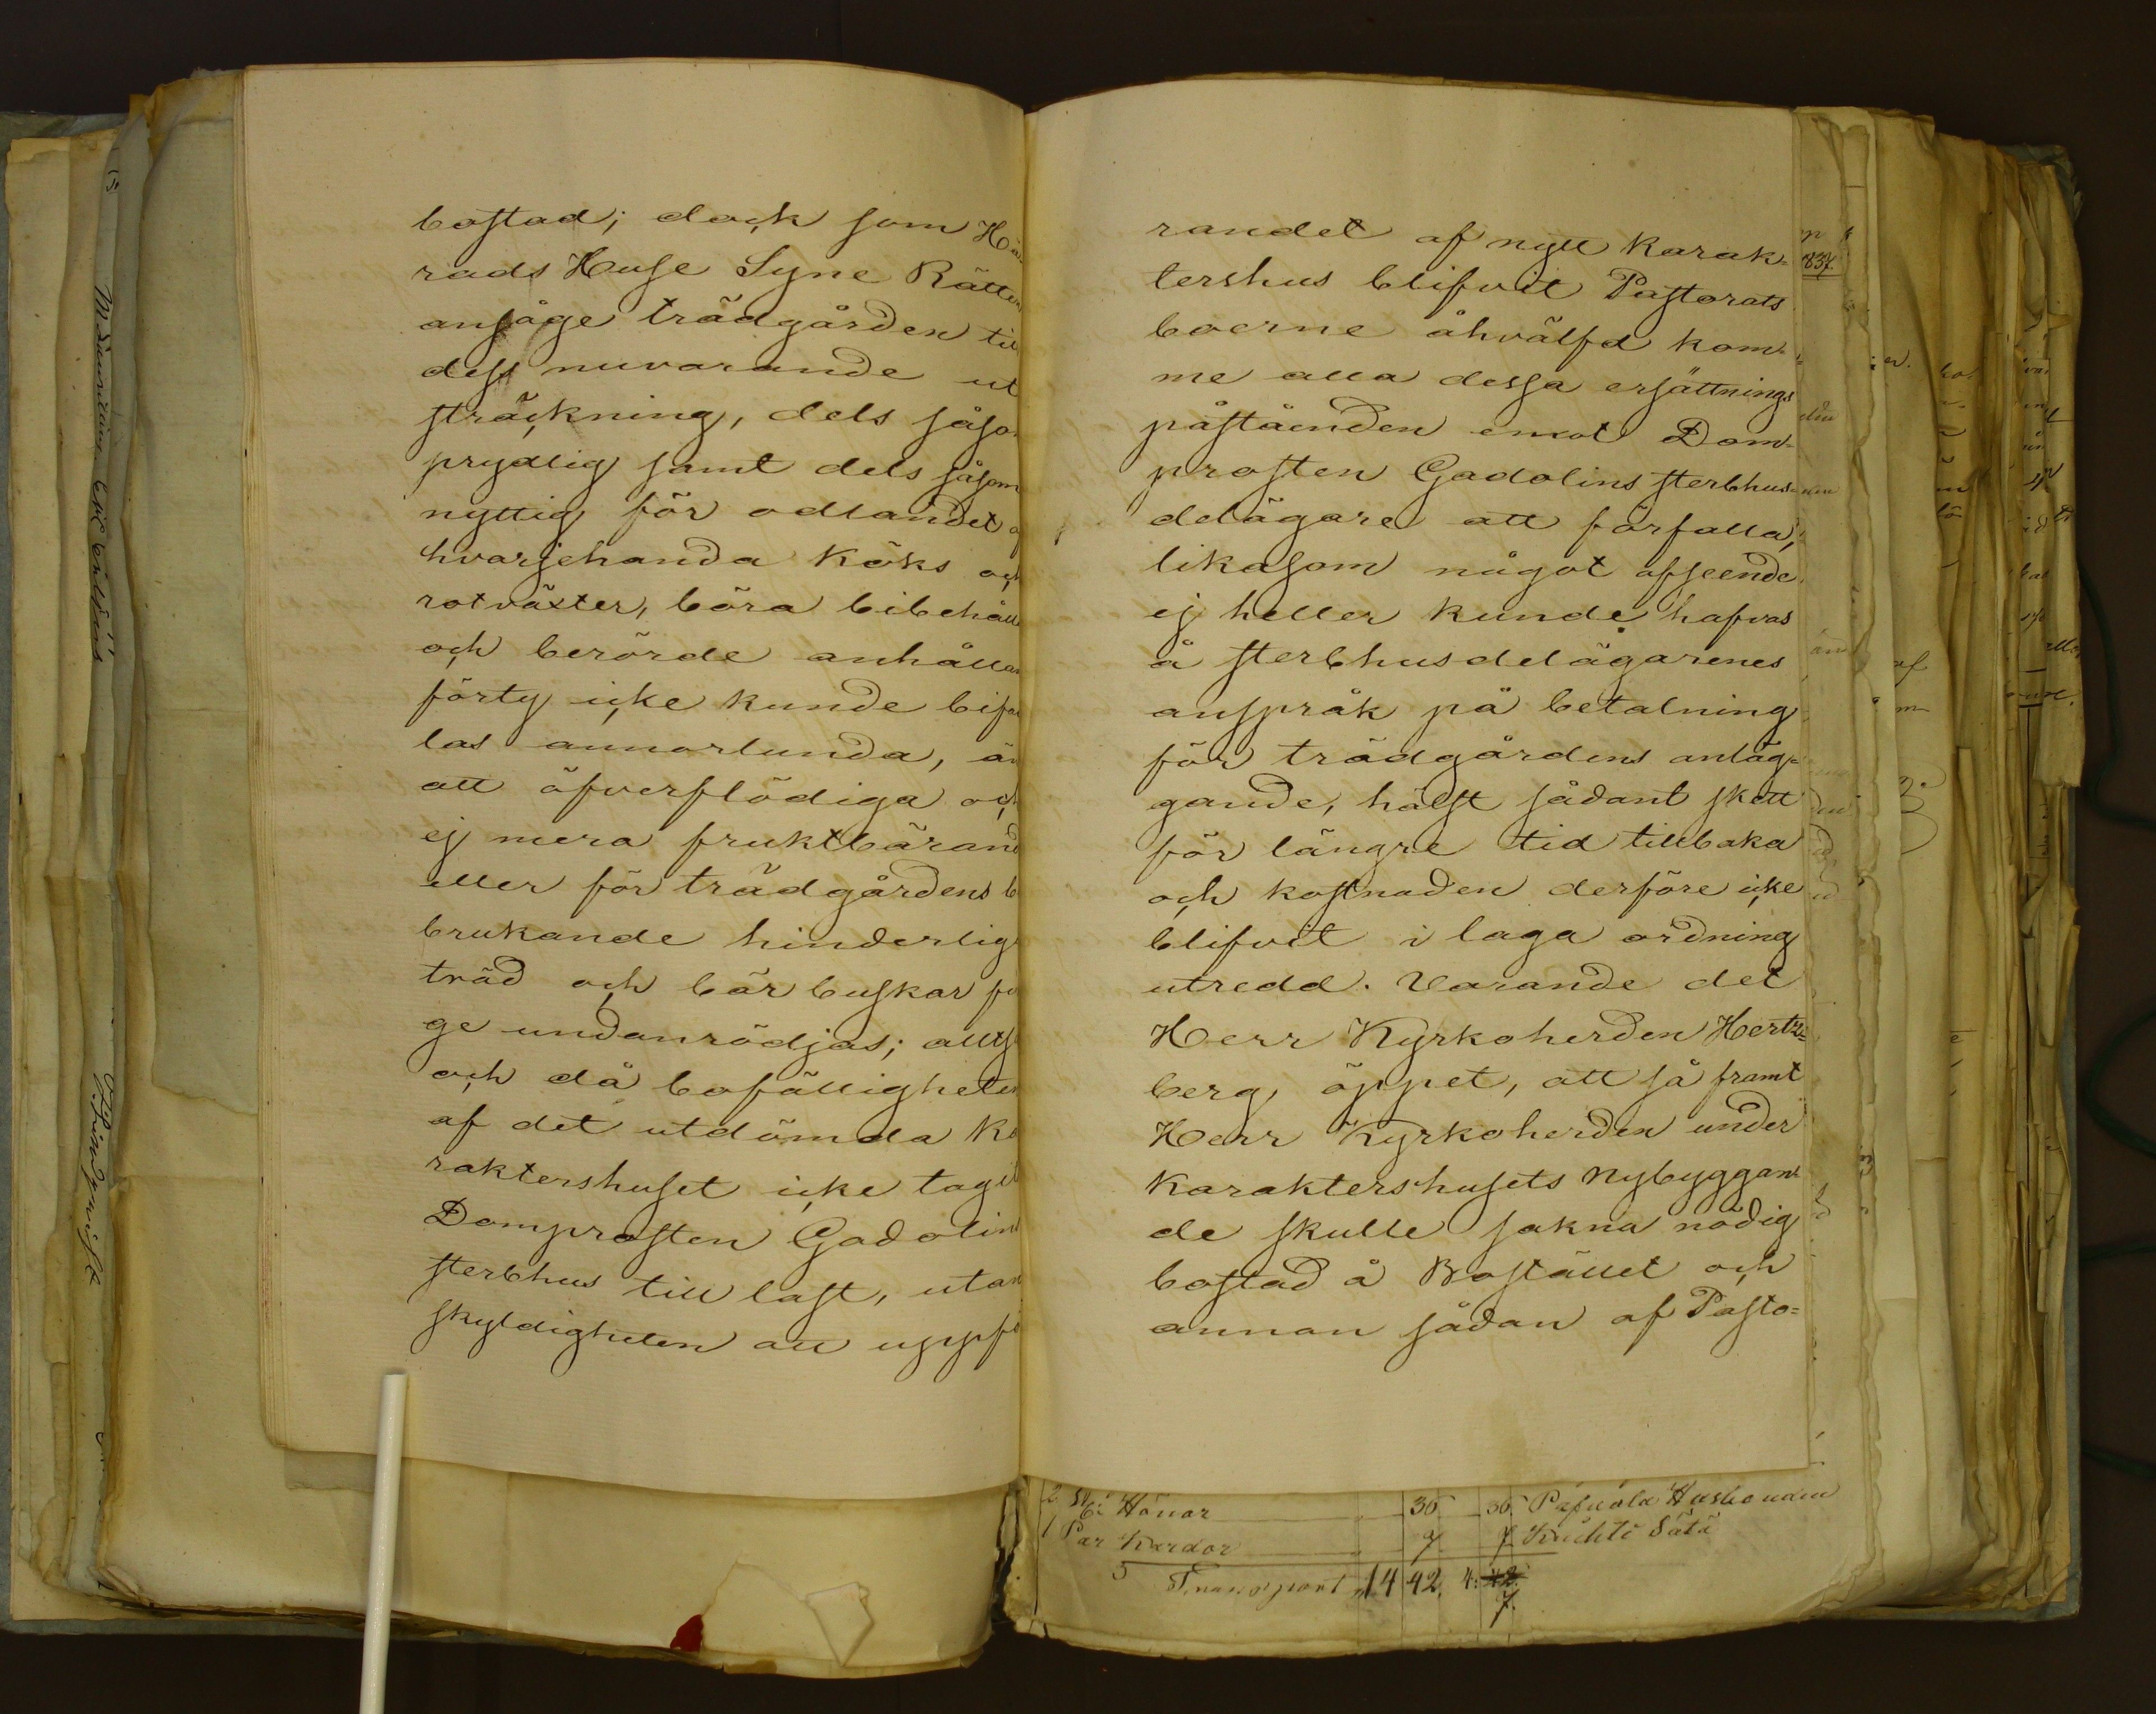 bostad; dock som Hä
rads Huse Syne Rätten
ansåge trädgården til
dess nuvarande ut
sträckning, dels såso
prydlig samt dels såsom
nyttig för odlandet a
hvarjehanda Köks och
rotväxter, böra bibehålla
och berörde anhållan
förty icke kunde bifal
las annorlunda, än
att öfverflödiga och
ej mera fruktbärand
eller för trädgårdens b
brukande hinderlig
träd och bärbuskar fi
ge undanrödjas; allts
och då bofälligheten
af det utdömda Ka
raktershuset icke tagit
Domprosten Gadolins
sterbhus till last, utan
skyldigheten att uppfö
randet af nytt Karak-
tershus blifvit Pastorats
boerne åhvälfd kom-
me alla dessa ersättnings
påståenden emot Dom-
prosten Gadolins sterbhus-
delägare att förfalla,
likasom något afseende
ej heller kunde hafvas
å sterbhusdelägarenes
anspråk på betalning
för trädgårdens anläg=
gande, hälst sådant skett
för längre tid tillbaka
och kostnaden derföre icke
blifvit i laga ordning
utredd. Varande det
Herr Kyrkoherden Hertz=
berg, öppet, att så framt
Herr Kyrkoherden under
Karaktershusets nybyggan
de skulle sakna nödig
bostad å Bostället och
annan sådan af Pasto=
837.
2 st: Hönor 35 35
1 Par Kardor 7 7
Transport 14 42. 4: 42.
7.